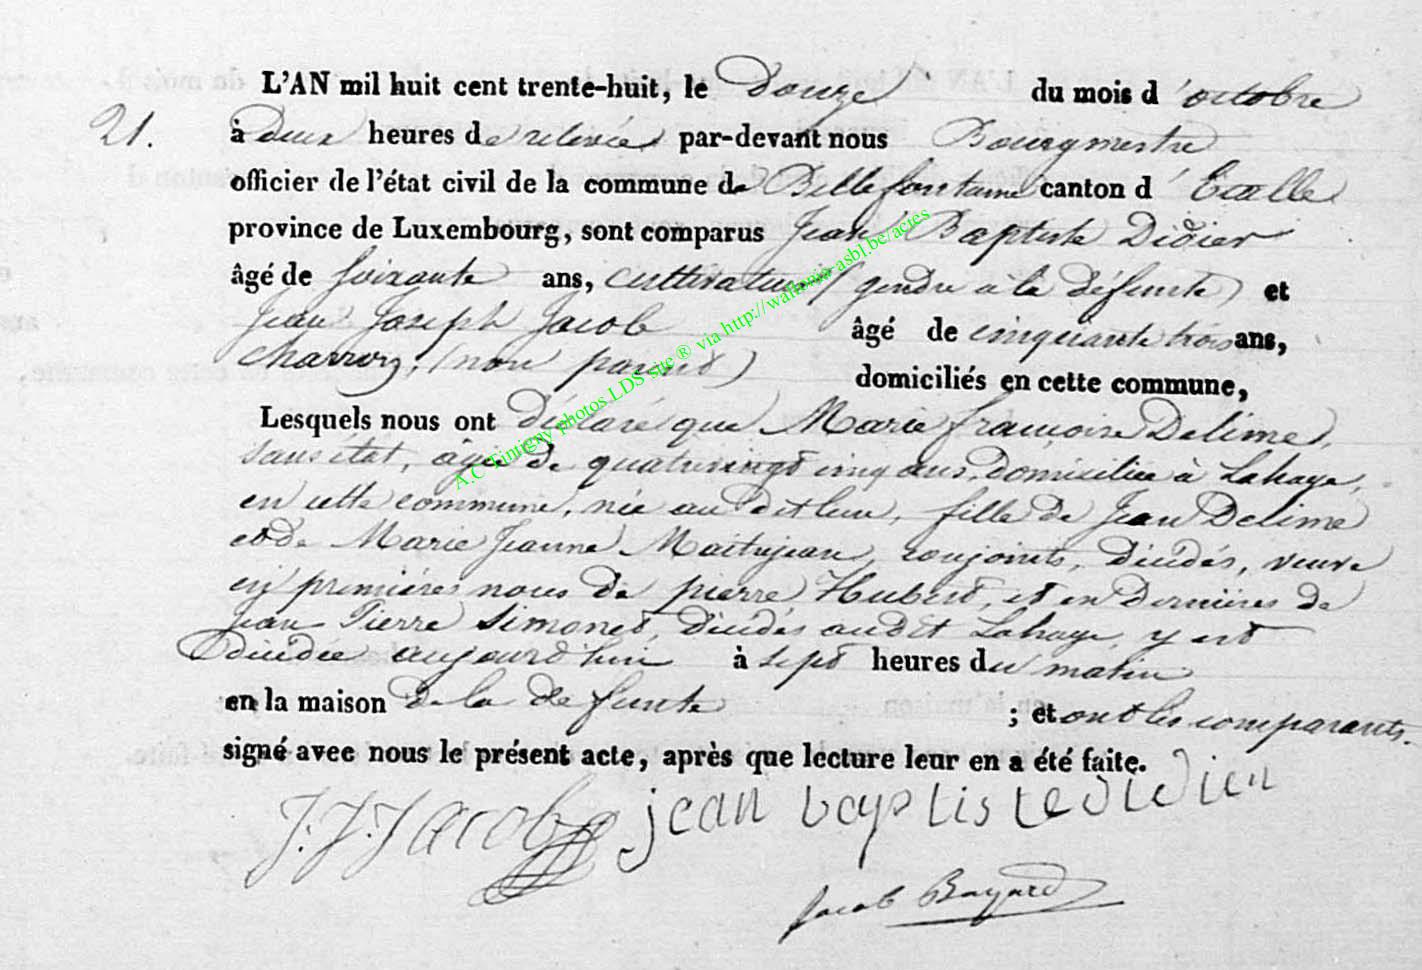 L'AN mil huit cent trente-huit, le Douze du mois d'octobre
21.
à Deux heures de relevée par-devant nous Bourgmestre
officier de l'état civil de la commune de Bellefontaine canton d' Etalle
province de Luxembourg, sont comparus Jean Baptiste Didier
âgé de soixante ans, cultivateur (gendre a la défunte) et
Jean Joseph Jacob âgé de cinquante trois ans,
charron, (non parent) domiciliés en cette commune,
Lesquels nous ont déclaré que Marie françoise Delime,
sans état, âgée de quatrevingt cinq ans, domiciliée à Lahage,
en cette commune, née au dit lieu, fille de Jean Delime
et de Marie Jeanne Maitrejean, conjoints, décédés, veuve
en premières noces de pierre Hubert, et en dernières de
Jean Pierre Simonet, décédés audit Lahage, y est
décédée aujourd'hui à sept heures du matin
en la maison de la defunte ; et ont les comparants
signé avec nous le présent acte, après que lecture leur en a été faite.
J. J. Jacob jean baptiste didier
Jacob Bayard
A.C Tintigny photos LDS site ® via http://wallonia-asbl.be/actes